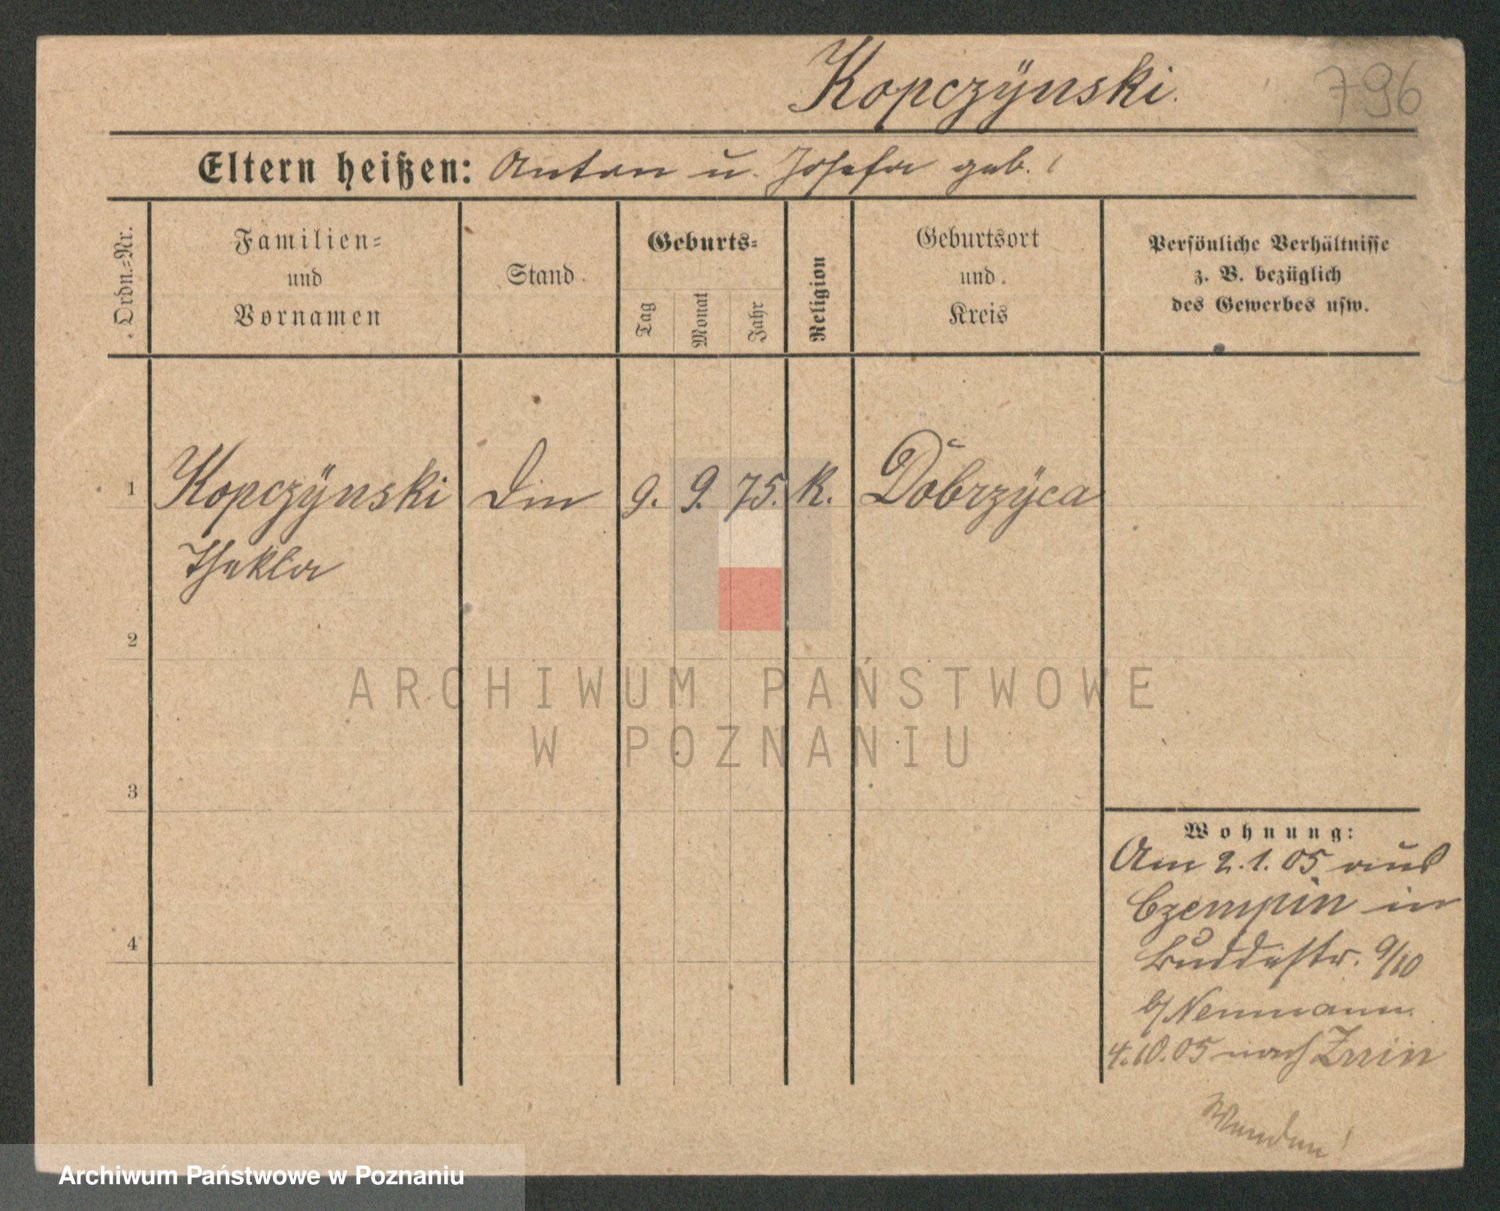 Kopczÿnski.
796
Eltern heißen: Anton u. Josefa geb.
Ordn.-Nr.
Familien-
und
Vornamen
Stand.
Geburts-
Tag
Monat
Jahr
Religion
Geburtsort
und
Kreis
Persönliche Verhältnisse
z. B. bezüglich
des Gewerbes usw.
1 Kopczÿnski 9. 9. 75. K. Dobrzÿca
Thekla
2
3
4
Wohnung:
Am 2.1.05 aus
Czempin in
Buddestr. 9/10
b/ Neumann
4.10.05 nach Znin
Wenden!
ARCHIWUM PAŃSTWOWE
W POZNANIU
Archiwum Państwowe w Poznaniu